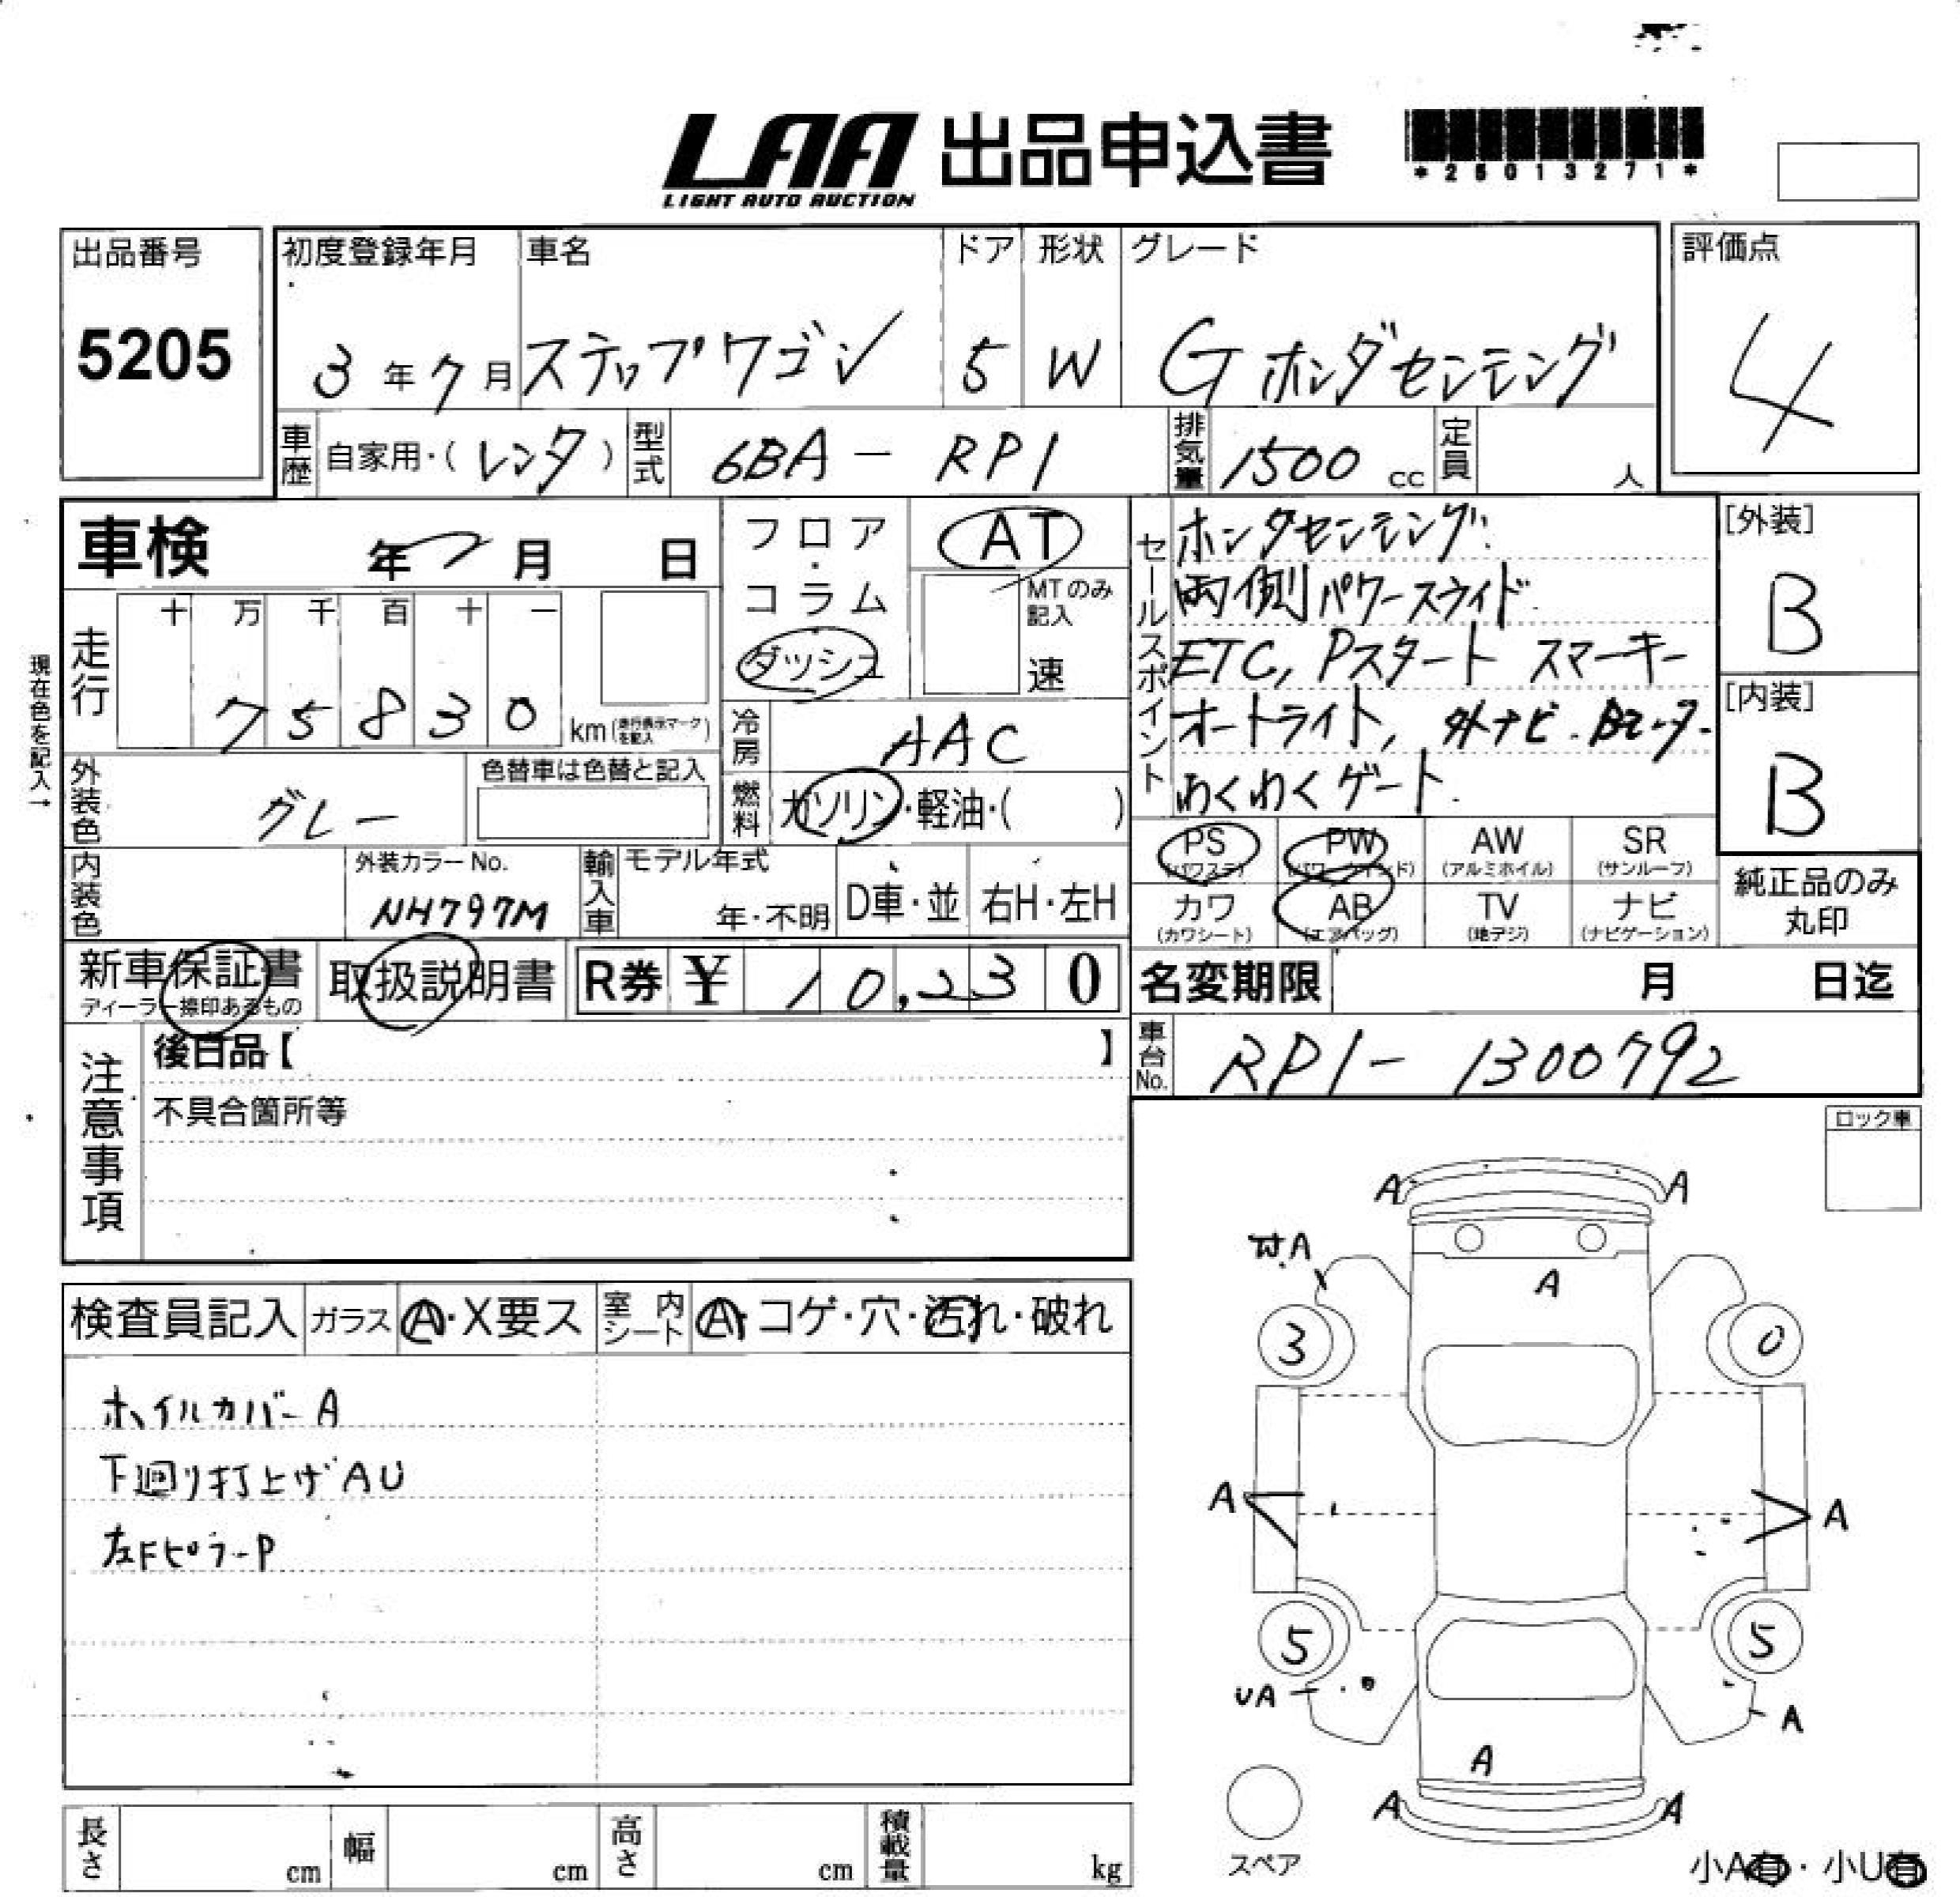 LAA 出品申込書
LIGHT AUTO AUCTION
出品番号
5205
初度登録年月 車名 ドア 形状 グレード
3年7月 ステップワゴン 5 W Gホンダセンシング
評価点
4
車歴 自家用・(レンタ) 型式 6BA-RP1 排気量 1500cc 定員 人
車検 年 月 日
フロア・コラム
ダッシュ
AT
MTのみ記入
速
走行 十万千百十一
75830 km(走行表示マークを記入)
現在色を記入→
冷房 AAC
燃料 ガソリン・軽油・( )
外装色 グレー
色替車は色替と記入
内装色
外装カラーNo.
NH797M
輸入車 モデル年式
年・不明 D車・並 右H・左H
セールスポイント
ホンダセンシング
両側パワースライド
ETC, Pスタート スマーキー
オートライト, 外ナビ.Bモニター
わくわくゲート
[外装]
B
[内装]
B
PS(パワステ) PW(パワーウインド) AW(アルミホイル) SR(サンルーフ)
カワ(カワシート) AB(エアバッグ) TV(地デジ) ナビ(ナビゲーション)
純正品のみ丸印
新車保証書
ディーラー捺印あるもの
取扱説明書
R券 ¥ 10,230
名変期限 月 日迄
車台No. RP1-1300792
注意事項
後日品【 】
不具合箇所等
ロック車
検査員記入 ガラス A・X要ス 室内シート A・コゲ・穴・汚れ・破れ
ホイルカバーA
下廻り打上げAU
左FピラーP
A A
A
3 0
A A
5 5
UA A
A
A A
スペア
長さ cm 幅 cm 高さ cm 積載量 kg
小A有・小U有